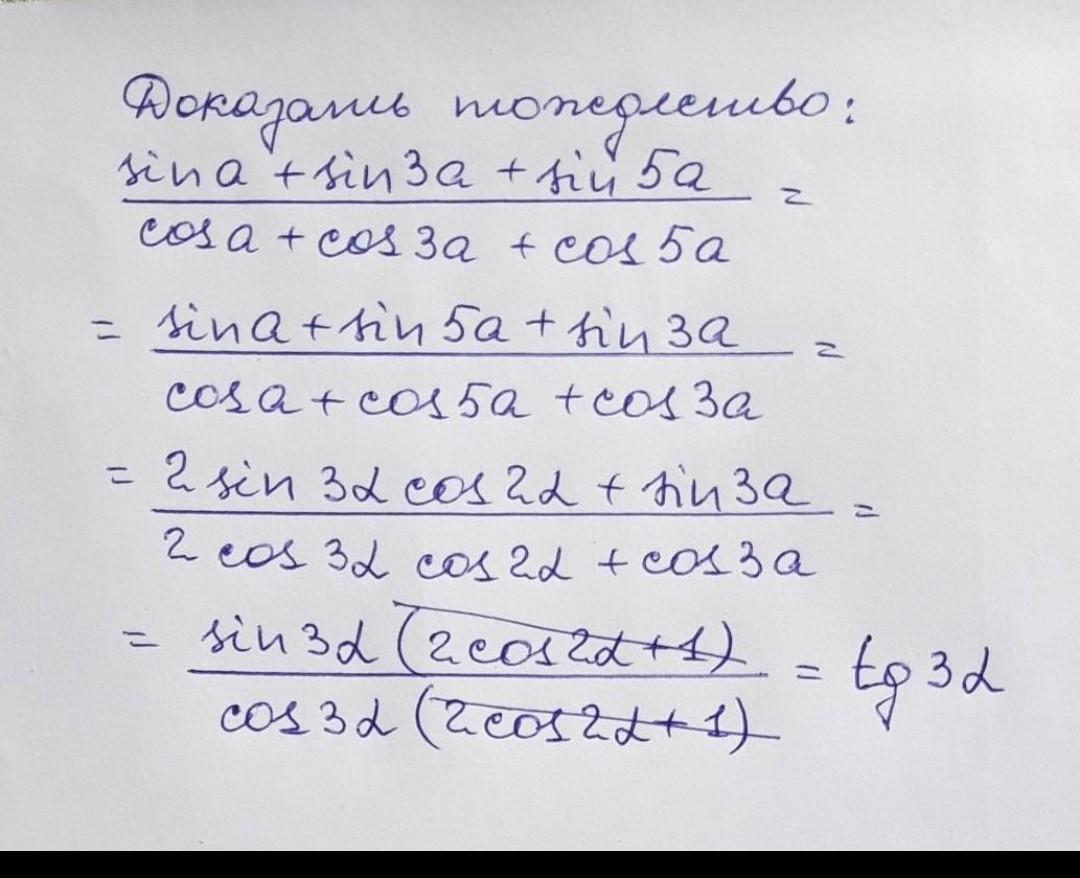 Доказать тождество:
sin a + sin 3a + sin 5a =
cos a + cos 3a + cos 5a
= sin a + sin 5a + sin 3a =
cos a + cos 5a + cos 3a
= 2 sin 3α cos 2α + sin 3a =
2 cos 3α cos 2α + cos 3a
= sin 3α (2cos 2α + 1) = tg 3α
cos 3α (2cos 2α + 1)